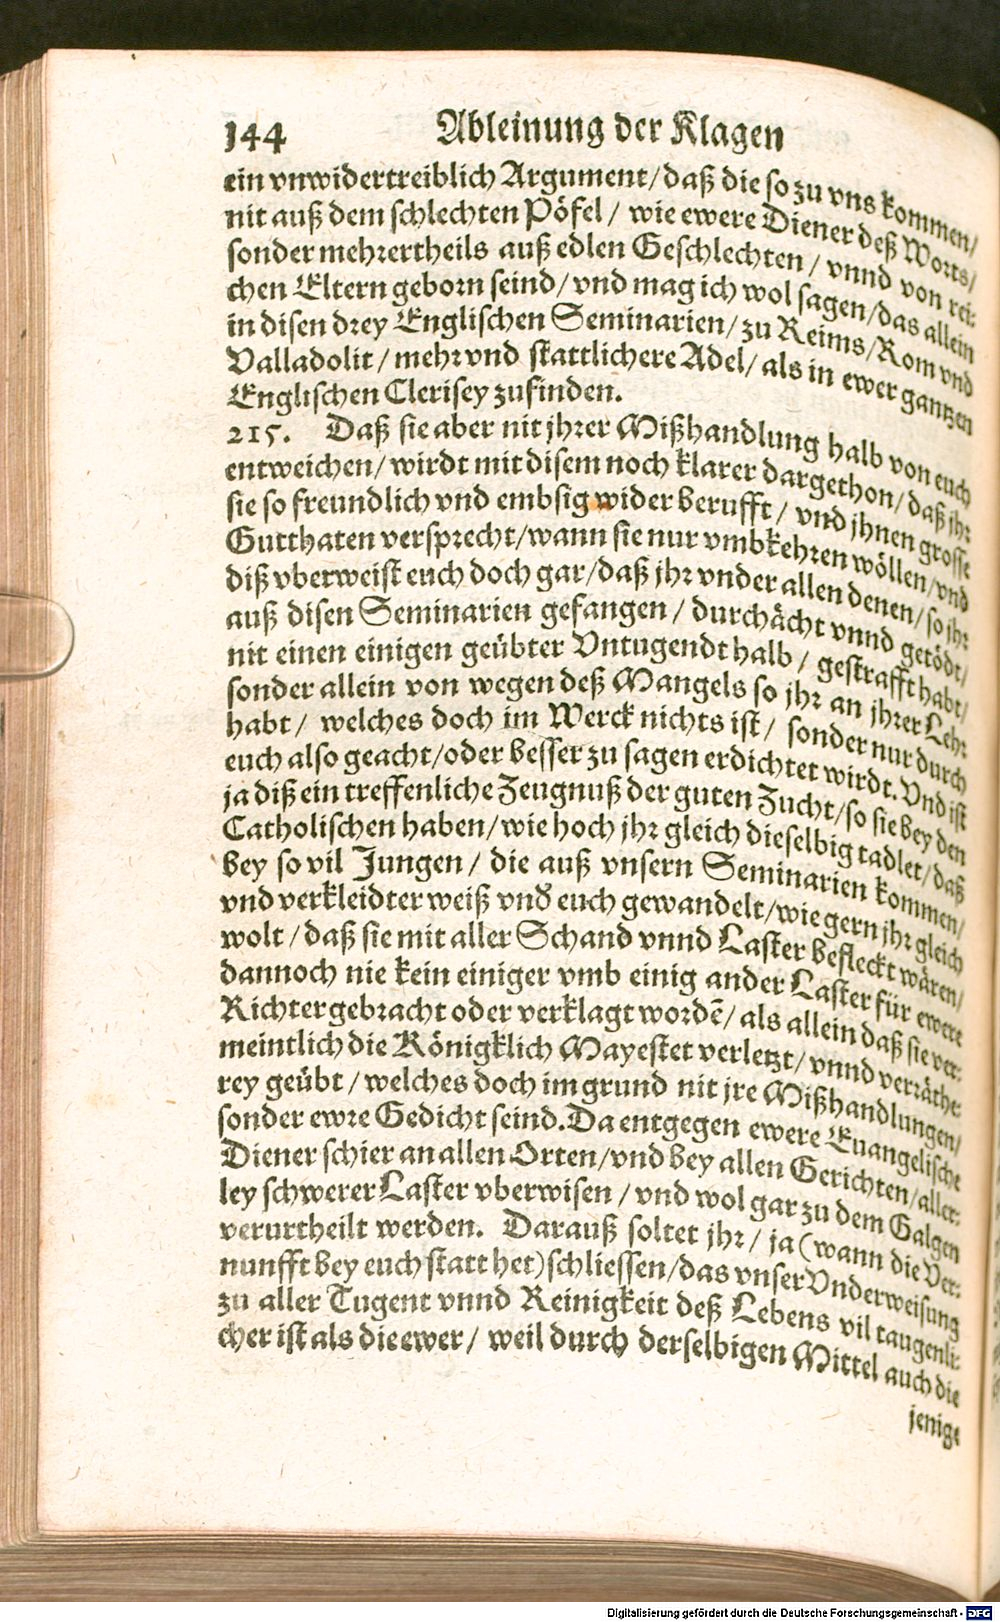 144 Ableinung der Klagen
ein vnwidertreiblich Argument/ daß die so zu vns kommen/
nit auß dem schlechten Pöfel/ wie ewere Diener deß Worts/
sonder mehrertheils auß edlen Geschlechten/ vnnd von rei-
chen Eltern geborn seind/ vnd mag ich wol sagen/ das allein
in disen drey Englischen Seminarien/ zu Reims/ Rom vnd
Valladolit/ mehr vnd stattlichere Adel/ als in ewer gantzen
Englischen Clerisey zufinden.
215. Daß sie aber nit jhrer Mißhandlung halb von euch
entweichen/ wirdt mit disem noch klarer dargethon/ daß jhr
sie so freundlich vnd embsig wider berufft/ vnd jhnen grosse
Gutthaten versprecht/ wann sie nur vmbkehren wöllen/ vnd
diß vberweist euch doch gar/ daß jhr vnder allen denen/ so jhr
auß disen Seminarien gefangen/ durchächt vnnd getödt/
nit einen einigen geübter Vntugendt halb/ gestrafft habt/
sonder allein von wegen deß Mangels so jhr an jhrer Lehr
habt/ welches doch im Werck nichts ist/ sonder nur durch
euch also geacht/ oder besser zu sagen erdichtet wirdt. Vnd ist
ja diß ein treffenliche Zeugnuß der guten Zucht/ so sie bey den
Catholischen haben/ wie hoch jhr gleich dieselbig tadlet/ daß
bey so vil Jungen/ die auß vnsern Seminarien kommen/
vnd verkleidter weiß vnd̕ euch gewandelt/ wie gern jhr gleich
wolt/ daß sie mit aller Schand vnnd Laster befleckt wären/
dannoch nie kein einiger vmb einig ander Laster für ewere
Richter gebracht oder verklagt wordē/ als allein daß sie ver-
meintlich die Königklich Mayestet verletzt/ vnnd verräthe-
rey geübt/ welches doch im grund nit jre Mißhandlungen/
sonder ewre Gedicht seind. Da entgegen ewere Euangelische
Diener schier an allen Orten/ vnd bey allen Gerichten/ aller-
ley schwerer Laster vberwisen/ vnd wol gar zu dem Galgen
verurtheilt werden. Darauß soltet jhr/ ja (wann die Ver-
nunfft bey euch statt het) schliessen/ das vnser Vnderweisung
zu aller Tugent vnnd Reinigkeit deß Lebens vil taugenli-
cher ist als die ewer/ weil durch derselbigen Mittel auch die
jenige
Digitalisierung gefördert durch die Deutsche Forschungsgemeinschaft - DFG